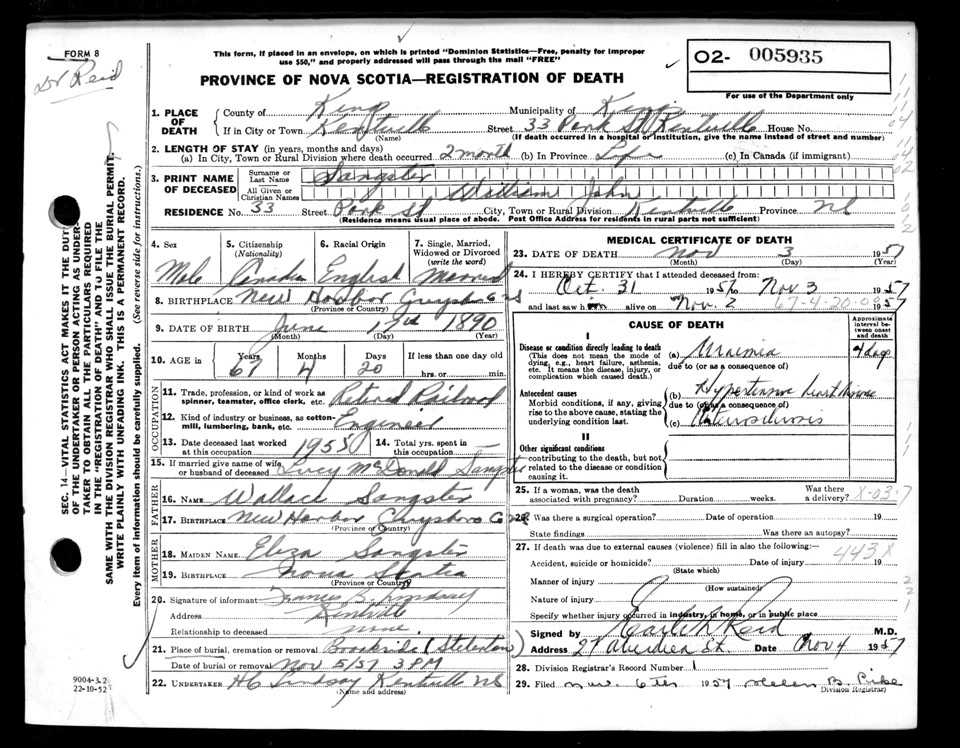 FORM 8
Dr Reid
This form, if placed in an envelope, on which is printed "Dominion Statistics—Free, penalty for improper
use $50," and properly addressed will pass through the mail "FREE"
02- 005935
For use of the Department only
PROVINCE OF NOVA SCOTIA—REGISTRATION OF DEATH
1. PLACE OF DEATH
County of Kings Municipality of Kings
If in City or Town Kentville Street 33 Park St Kentville House No.
(Name) (If death occurred in a hospital or institution, give the name instead of street and number)
2. LENGTH OF STAY (in years, months and days)
(a) In City, Town or Rural Division where death occurred 2 month (b) In Province Life (c) In Canada (if immigrant)
3. PRINT NAME OF DECEASED
Surname or Last Name Sangster
All Given or Christian Names William John
RESIDENCE No. 33 Street Park St City, Town or Rural Division Kentville Province NS
(Residence means usual place of abode. Post Office Address for residents in rural parts not sufficient)
4. Sex Male
5. Citizenship (Nationality) Canadian
6. Racial Origin English
7. Single, Married, Widowed or Divorced (write the word) Married
8. BIRTHPLACE New Harbor Guysboro Co NS
(Province or Country)
9. DATE OF BIRTH June 17th 1890
(Month) (Day) (Year)
10. AGE in Years 67 Months 4 Days 20 If less than one day old
hrs. or min.
OCCUPATION
11. Trade, profession, or kind of work as spinner, teamster, office clerk, etc. Retired Railroad
12. Kind of industry or business, as cotton-mill, lumbering, bank, etc. Engineer
13. Date deceased last worked at this occupation 1955
14. Total yrs. spent in this occupation —
15. If married give name of wife or husband of deceased Lucy McDonald Sangster
FATHER
16. NAME Wallace Sangster
17. BIRTHPLACE New Harbor Guysboro Co NS
(Province or Country)
MOTHER
18. MAIDEN NAME Eliza Sangster
19. BIRTHPLACE Nova Scotia
(Province or Country)
20. Signature of informant Frances B. Lindsay
Address Kentville
Relationship to deceased none
21. Place of burial, cremation or removal Brookside (Stellarton)
Date of burial or removal Nov 5/57 3 PM
22. UNDERTAKER HC Lindsay Kentville NS
(Name and address)
MEDICAL CERTIFICATE OF DEATH
23. DATE OF DEATH Nov 3 1957
(Month) (Day) (Year)
24. I HEREBY CERTIFY that I attended deceased from:
Oct. 31 1957 to Nov 3 1957
and last saw him alive on Nov. 2 1957
67-4-20-00
CAUSE OF DEATH
Approximate interval between onset and death
I
Disease or condition directly leading to death
(This does not mean the mode of dying, e.g., heart failure, asthenia, etc. It means the disease, injury, or complication which caused death.)
(a) Uraemia 4 days
due to (or as a consequence of)
Antecedent causes
Morbid conditions, if any, giving rise to the above cause, stating the underlying condition last.
(b) Hypertensive heart disease
due to (or as a consequence of)
(c) Arteriosclerosis
II
Other significant conditions
contributing to the death, but not related to the disease or condition causing it.
25. If a woman, was the death associated with pregnancy? Duration weeks. Was there a delivery?
X-03.7
26. Was there a surgical operation? Date of operation 19
State findings Was there an autopsy?
27. If death was due to external causes (violence) fill in also the following:—
443X
Accident, suicide or homicide? Date of injury 19
(State which)
Manner of injury
(How sustained)
Nature of injury
Specify whether injury occurred in industry, in home, or in public place
Signed by Reid M.D.
Address 27 Aberdeen St. Date Nov 4 1957
28. Division Registrar's Record Number 1
29. Filed Nov. 6th 1957 Helen B. Pike
Division Registrar
SEC. 14—VITAL STATISTICS ACT MAKES IT THE DUTY
OF THE UNDERTAKER OR PERSON ACTING AS UNDER-
TAKER TO OBTAIN ALL THE PARTICULARS REQUIRED
IN THE "REGISTRATION OF DEATH" AND TO FILE THE
SAME WITH THE DIVISION REGISTRAR WHO SHALL ISSUE THE BURIAL PERMIT.
WRITE PLAINLY WITH UNFADING INK. THIS IS A PERMANENT RECORD.
Every item of information should be carefully supplied. (See reverse side for instructions.)
9004-3.2
22-10-52